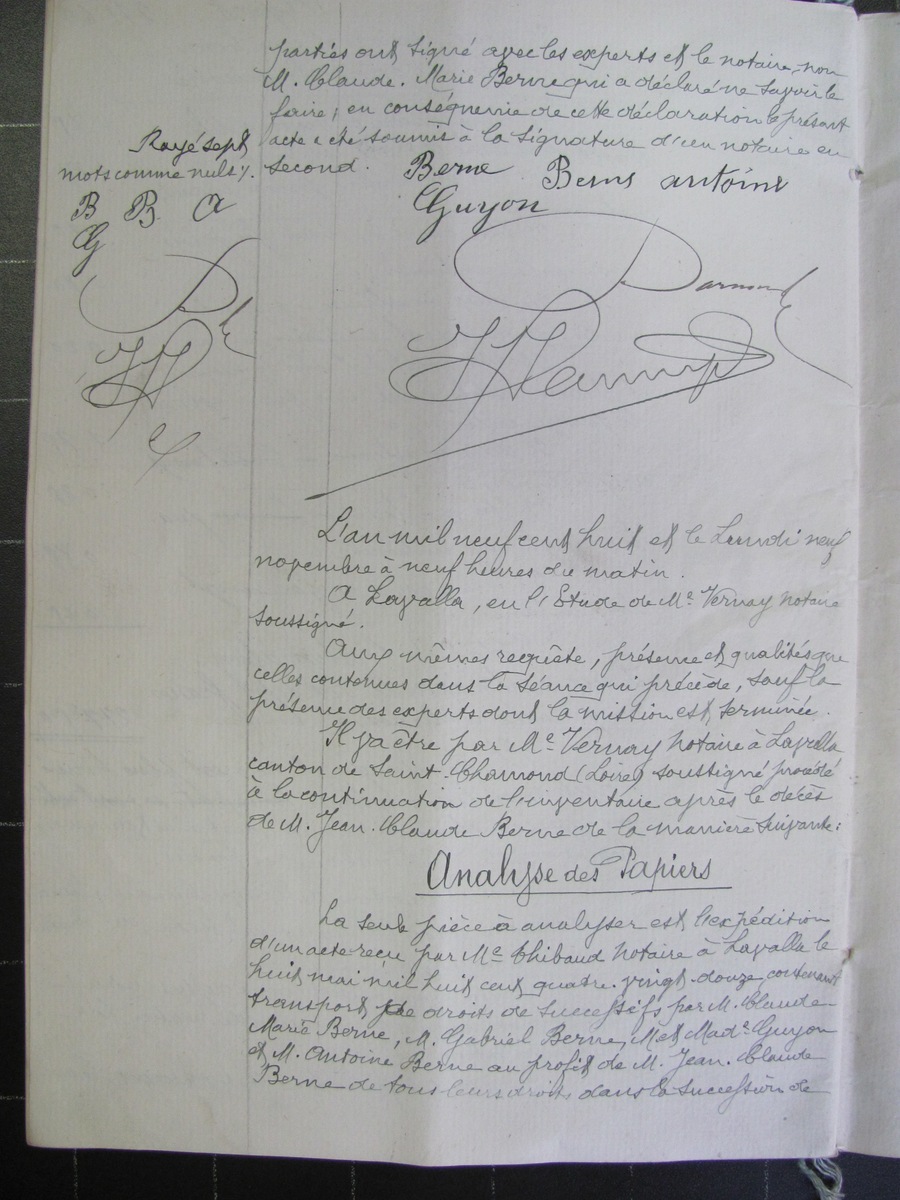 parties ont signé avec les experts et le notaire, non
M. Claude. Marie Berne qui a déclaré ne savoir le
faire; en conséquence de cette déclaration le présent
acte a été soumis à la signature d'un notaire en
second.
Rayé sept
mots comme nuls
B B A
G
Berne Berne antoine
Guyon
L'an mil neuf cent huit et le Lundi neuf
novembre à neuf heures du matin.
A Lavalla, en l'Etude de Me Vernay notaire
soussigné.
Aux mêmes requête, présence et qualités que
celles contenues dans la séance qui précède, sauf la
présence des experts dont la mission est terminée.
Il va être par Me Vernay notaire à Lavalla
canton de Saint-Chamond (Loire) soussigné procédé
à la continuation de l'inventaire après le décès
de M. Jean. Claude Berne de la manière suivante:
Analyse des Papiers
La seule pièce à analyser est l'expédition
d'un acte reçu par Me Thibaud notaire à Lavalla le
huit mai mil huit cent quatre-vingt-douze contenant
transport de droits de successifs par M. Claude
Marie Berne, M. Gabriel Berne, M et Made Guyon
et M. Antoine Berne au profit de M. Jean. Claude
Berne de tous leurs droits dans la succession de